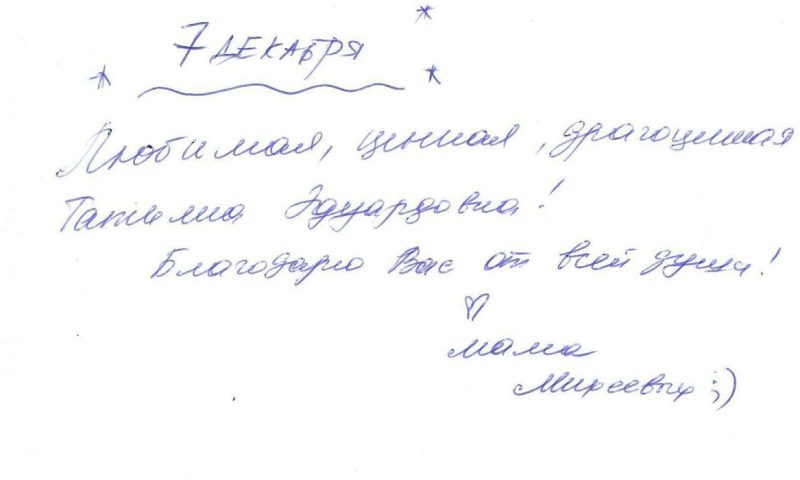 7 ДЕКАБРЯ
Любимая, ценная, драгоценная
Татьяна Эдуардовна!
Благодарю Вас от всей души!
мама
Михеевых :)